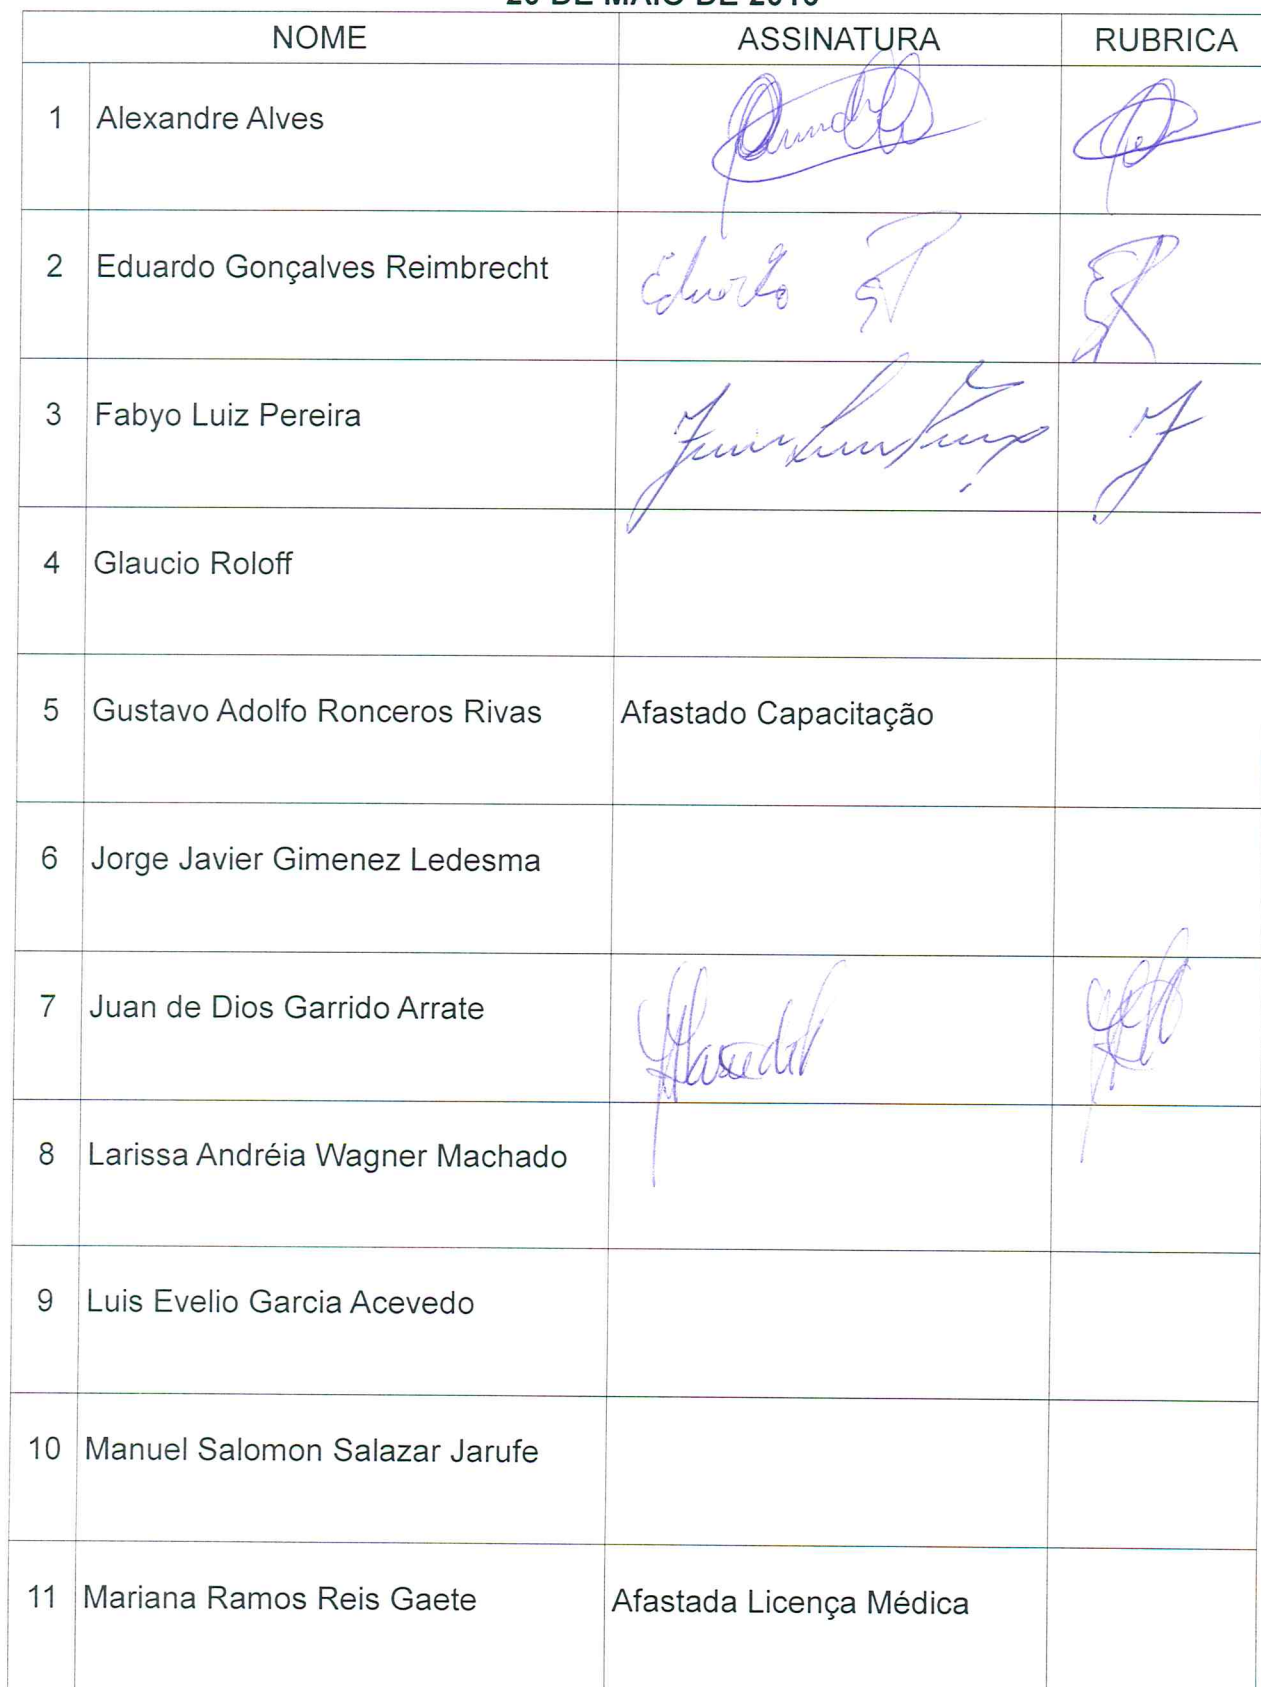 DE MAIO DE
NOME ASSINATURA RUBRICA
1 Alexandre Alves
2 Eduardo Gonçalves Reimbrecht Eduardo
3 Fabyo Luiz Pereira
4 Glaucio Roloff
5 Gustavo Adolfo Ronceros Rivas Afastado Capacitação
6 Jorge Javier Gimenez Ledesma
7 Juan de Dios Garrido Arrate
8 Larissa Andréia Wagner Machado
9 Luis Evelio Garcia Acevedo
10 Manuel Salomon Salazar Jarufe
11 Mariana Ramos Reis Gaete Afastada Licença Médica